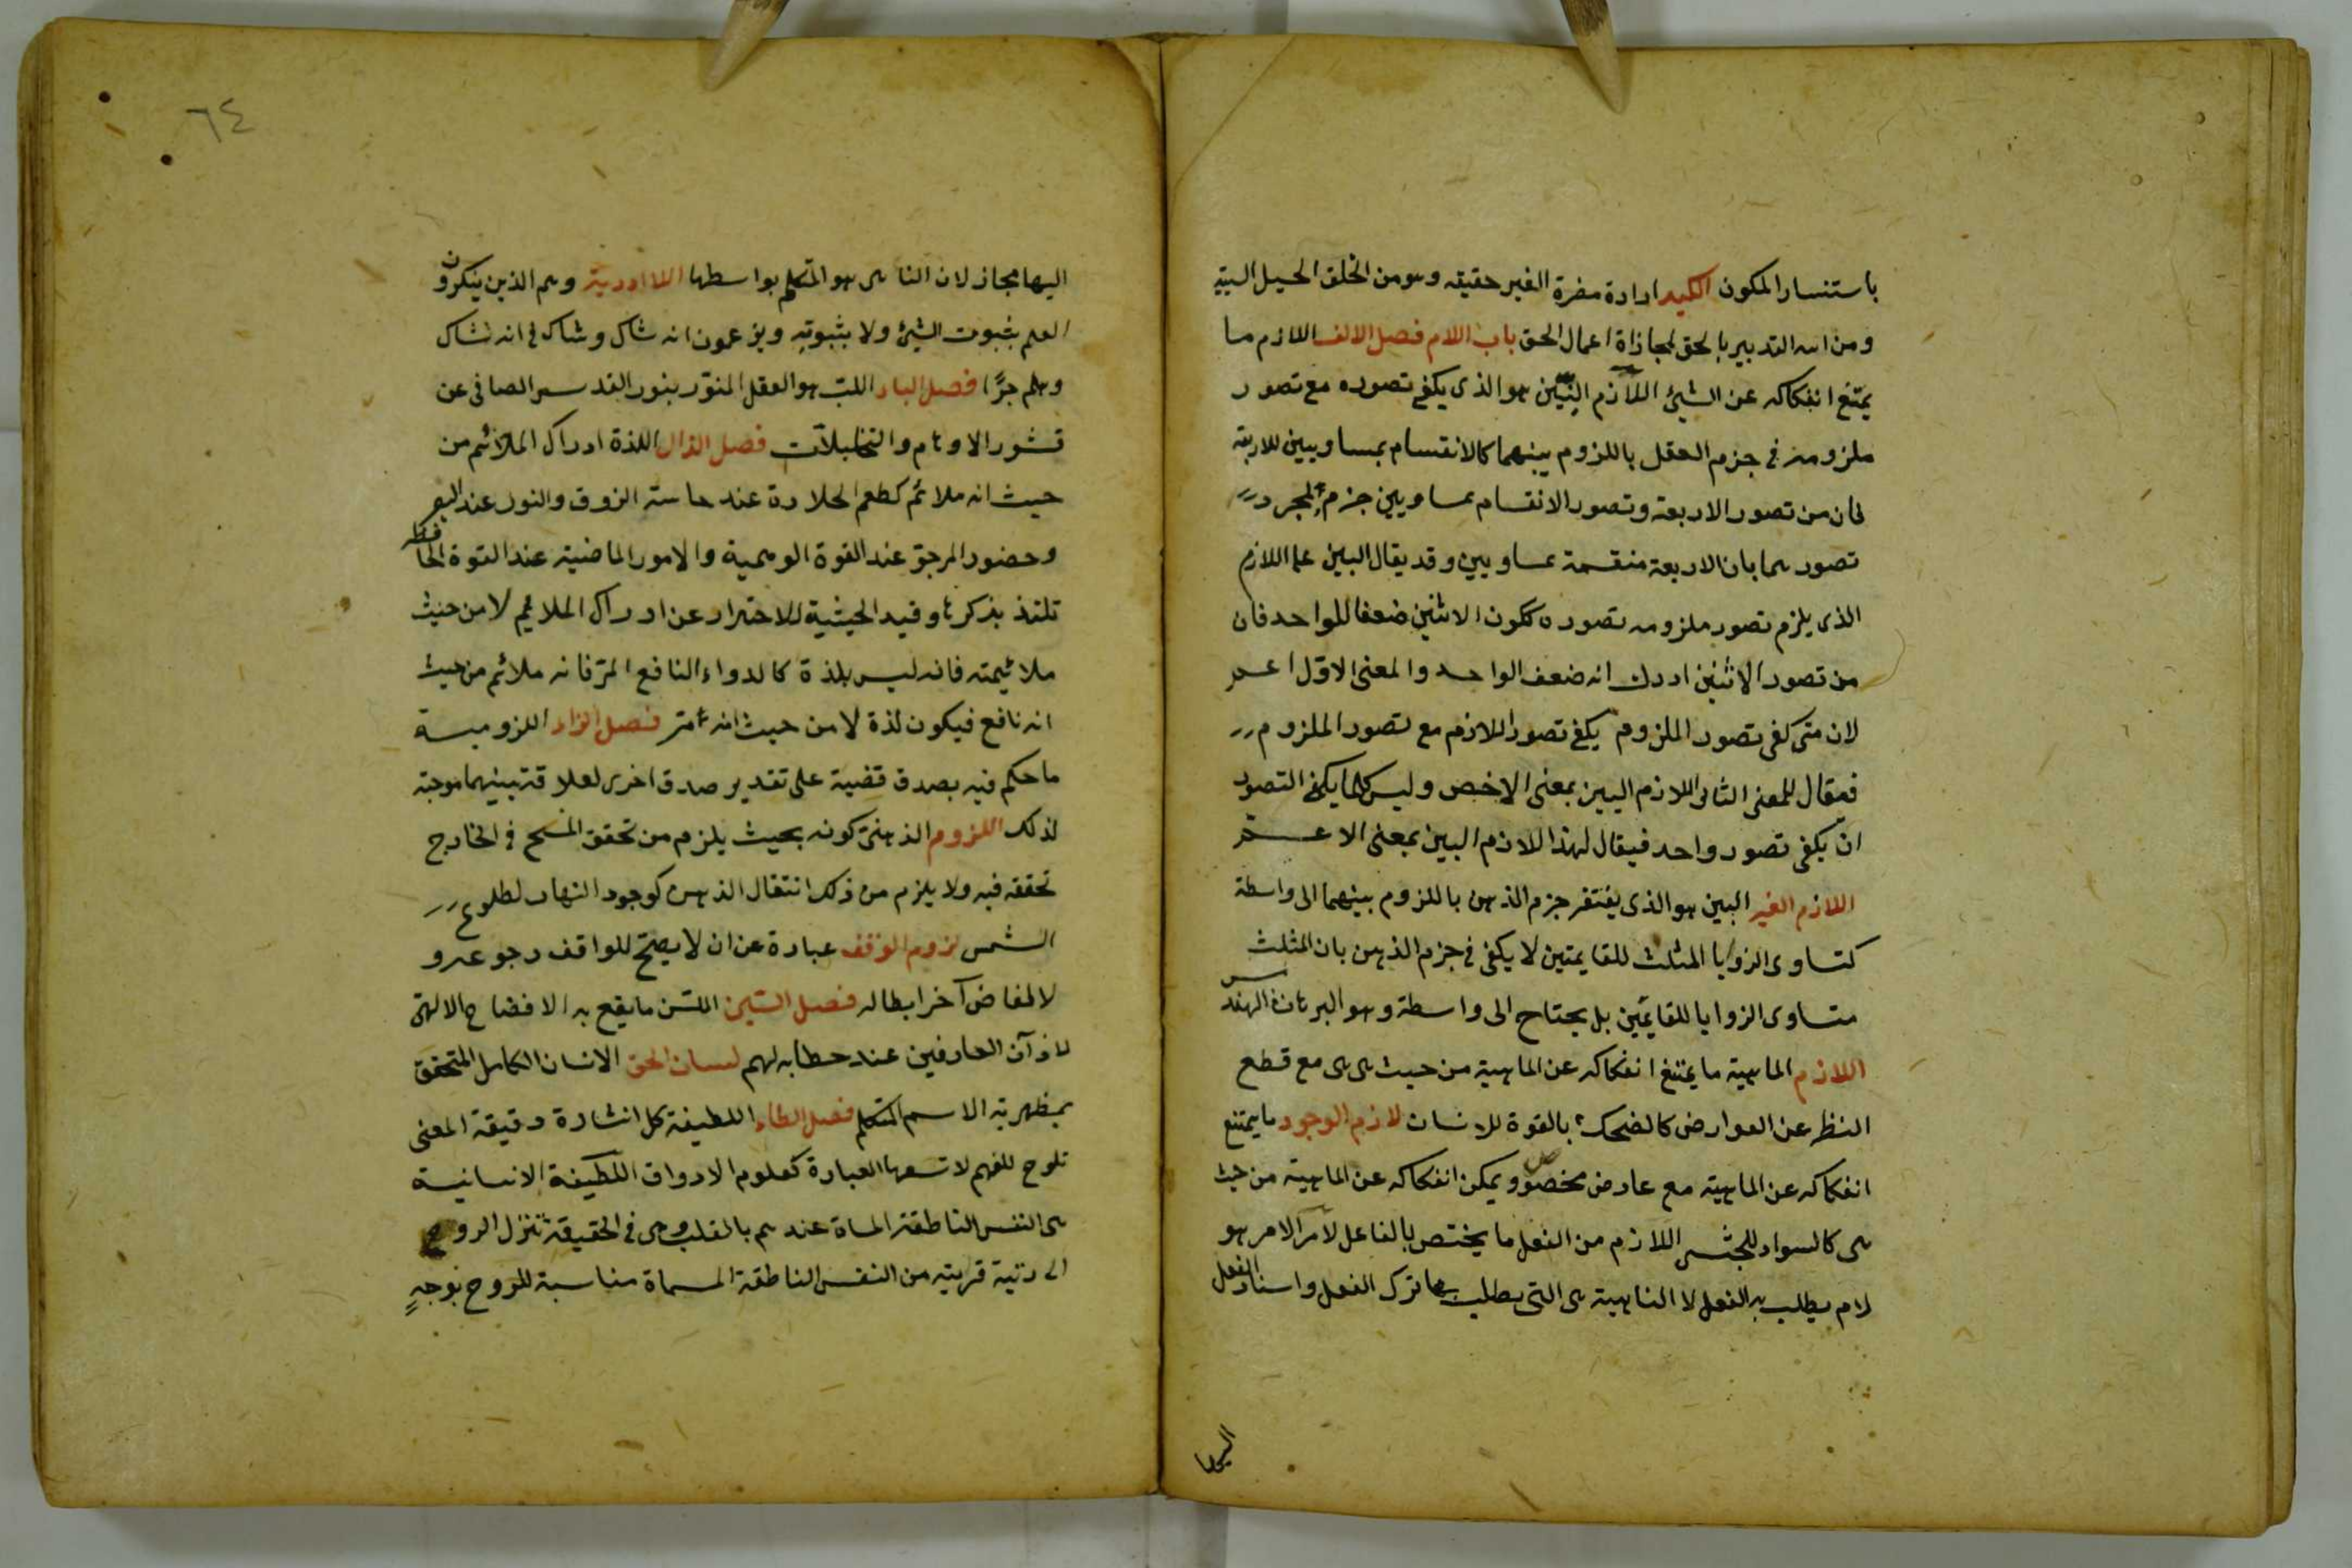 باستنسار المكون الكيد ارادة مضرة الغير حقيقه وهو من الخلق الحيل السيئة
ومن الله التدبير بالحق لمجازاة اعمال الحق باب اللام فصل الالف اللازم ما
يمتنع انفكاكه عن الشيئ اللازم البيّن هو الذى يكفى تصوره مع تصور
ملزومه فى جزم العقل باللزوم بينهما كالانقسام بمساويين للاربعة
فان من تصور الاربعة وتصور الانقسام بمساويين جزم بمجرد
تصورهما بان الاربعة منقسمة بمساويين وقد يقال البين على اللازم
الذى يلزم تصور ملزومه تصوره ككون الاثنين ضعفا للواحد فان
من تصور الاثنين ادرك انه ضعف الواحد والمعنى الاوّل اعم
لان متى كفى تصور الملزوم يكفى تصور اللازم مع تصور الملزوم
فيقال للمعنى الثانى اللازم البين بمعنى الاخص وليس كلما يكفى التصور
ان يكفى تصور واحد فيقال لهذا اللازم البين بمعنى الاعم
اللازم الغير البين هو الذى يفتقر جزم الذهن باللزوم بينهما الى واسطة
كتساوى الزوايا المثلث للقايمتين لا يكفى فى جزم الذهن بان المثلث
متساوى الزوايا للقايمتين بل يحتاج الى واسطة وهو البرهان الهندسى
اللازم الماهية ما يمتنع انفكاكه عن الماهية من حيث هى هى مع قطع
النظر عن العوارض كالضحك بالقوة للانسان لازم الوجود ما يمتنع
انفكاكه عن الماهية مع عارض مخصوص ويمكن انفكاكه عن الماهية من حيث
هى كالسواد للحبشى اللازم من الفعل ما يختص بالفاعل لام الامر هو
لام يطلب به الفعل لا الناهية هى التى يطلب بها ترك الفعل واسناد الفعل
اليها
٦٤
اليها مجاز لان الناهى هو المتكلم بواسطها اللاادرية وهم الذين ينكرون
العلم بثبوت الشيئ ولا بثبوته ويزعمون انه شاك وشاك فى انه شاك
وهلم جرًّا فصل الباء اللبّ هو العقل المنوّر بنور القدس الصافى عن
قشور الاوهام والتخيلات فصل الذال اللذة ادراك الملائم من
حيث انه ملائم كطعم الحلاوة عند حاسة الزوق والنور عند البصر
وحضور المرجو عند القوة الوهمية والامور الماضية عند القوة الحافظه
تلتذ بذكرها وقيد الحيثية للاحتراز عن ادراك الملائم لا من حيث
ملائيمته فانه ليس بلذة كالدواء النافع المرّ فانه ملائم من حيث
انه نافع فيكون لذة لا من حيث انه مرّ فصل الزاء اللزومية
ما حكم فيه بصدق قضية على تقدير صدق اخرى لعلاقة بينهما موجبة
لذلك اللزوم الذهنى كونه بحيث يلزم من تحقق المسمى فى الخارج
تحققه فيه ولا يلزم من ذلك انتقال الذهن كوجود النهار لطلوع
الشمس لزوم الوقف عبارة عن ان لا يصح للواقف رجوعه و
لا لقاض آخر ابطاله فصل السّين اللسن ما يقع به الافضاح الالهى
لاذآن العارفين عند خطابه لهم لسان الحق الانسان الكامل المتحقق
بمظهرية الاسم المتكلم فصل الطاء اللطيفة كل اشارة دقيقة المعنى
تلوح للفهم لا تسعها العبارة كعلوم الاذواق اللطيفة الانسانية
هى النفس الناطقة المسماة عندهم بالقلب وهى فى الحقيقة تنزل الروح
الى رتبة قريبة من النفس الناطقة المسماة مناسبة للروح بوجهٍ